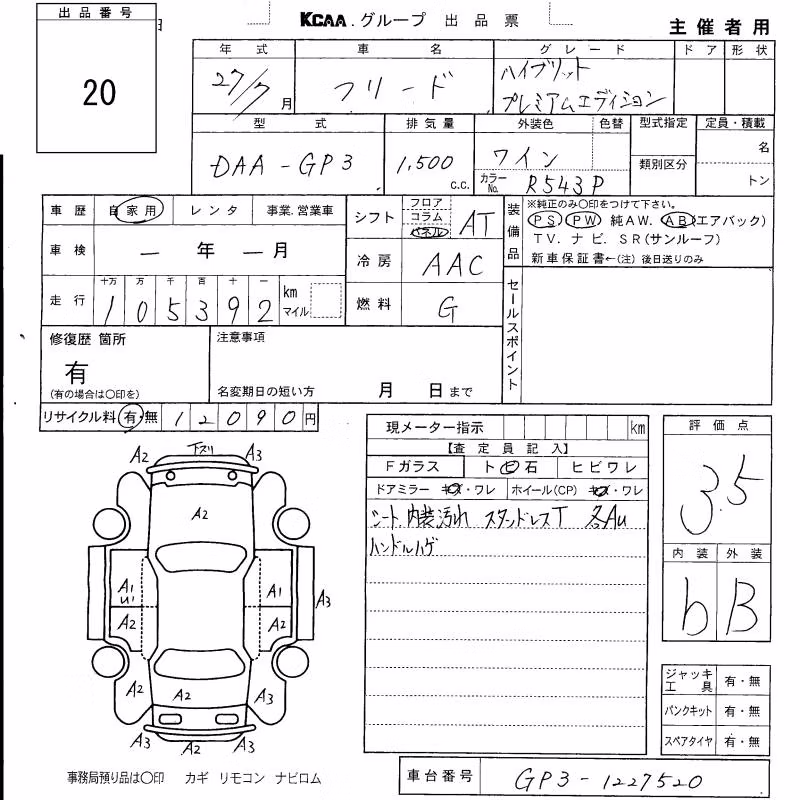 出品番号
20
日
KCAA.グループ 出品票
主催者用
年式 車名 グレード ドア 形状
27/7月 フリード ハイブリット
プレミアムエディション
型式 排気量 外装色 色替 型式指定 定員・積載
DAA-GP3 1,500c.c. ワイン 名
カラーNo. R543P 類別区分 トン
車歴 自家用 レンタ 事業.営業車
シフト フロア コラム パネル AT
装備品 ※純正のみ〇印をつけて下さい。
PS PW 純AW. AB(エアバック)
TV. ナビ. SR(サンルーフ)
新車保証書←(注) 後日送りのみ
車検 ー年ー月
冷房 AAC
走行 十万 万 千 百 十 一
105392 km マイル
燃料 G
セールスポイント
修復歴 箇所
有
(有の場合は〇印を)
注意事項
名変期日の短い方 月 日まで
リサイクル料 有・無 12090円
現メーター指示 km
【査定員記入】
Fガラス ト ビ 石 ヒビワレ
ドアミラー キズ・ワレ ホイール(CP) キズ・ワレ
シート 内装汚れ スタッドレスT 各Au
ハンドルハゲ
評価点
3.5
内装 外装
b B
A2 下スリ A3
A2
A1 U1 A1 A3
A2 A2
A2 A2 A3
A3 A2 A3
ジャッキ工具 有・無
パンクキット 有・無
スペアタイヤ 有・無
事務局預り品は〇印 カギ リモコン ナビロム
車台番号 GP3-1227520